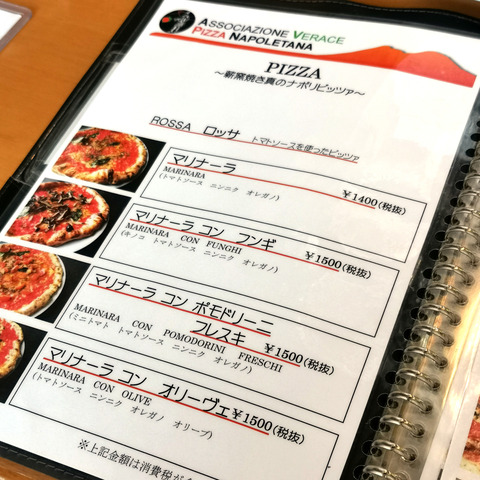 ASSOCIAZIONE VERACE
PIZZA NAPOLETANA
PIZZA
～薪窯焼き真のナポリピッツァ～
ROSSA ロッサ トマトソースを使ったピッツァ
マリナーラ
MARINARA ￥1400(税抜)
(トマトソース ニンニク オレガノ)
マリナーラ コン フンギ
MARINARA CON FUNGHI ￥1500(税抜)
(キノコ トマトソース ニンニク オレガノ)
マリナーラ コン ポモドリーニ
フレスキ
MARINARA CON POMODORINI FRESCHI ￥1500(税抜)
(ミニトマト トマトソース ニンニク オレガノ)
マリナーラ コン オリーヴェ ￥1500(税抜)
MARINARA CON OLIVE
(トマトソース ニンニク オレガノ オリーブ)
※上記金額は消費税が